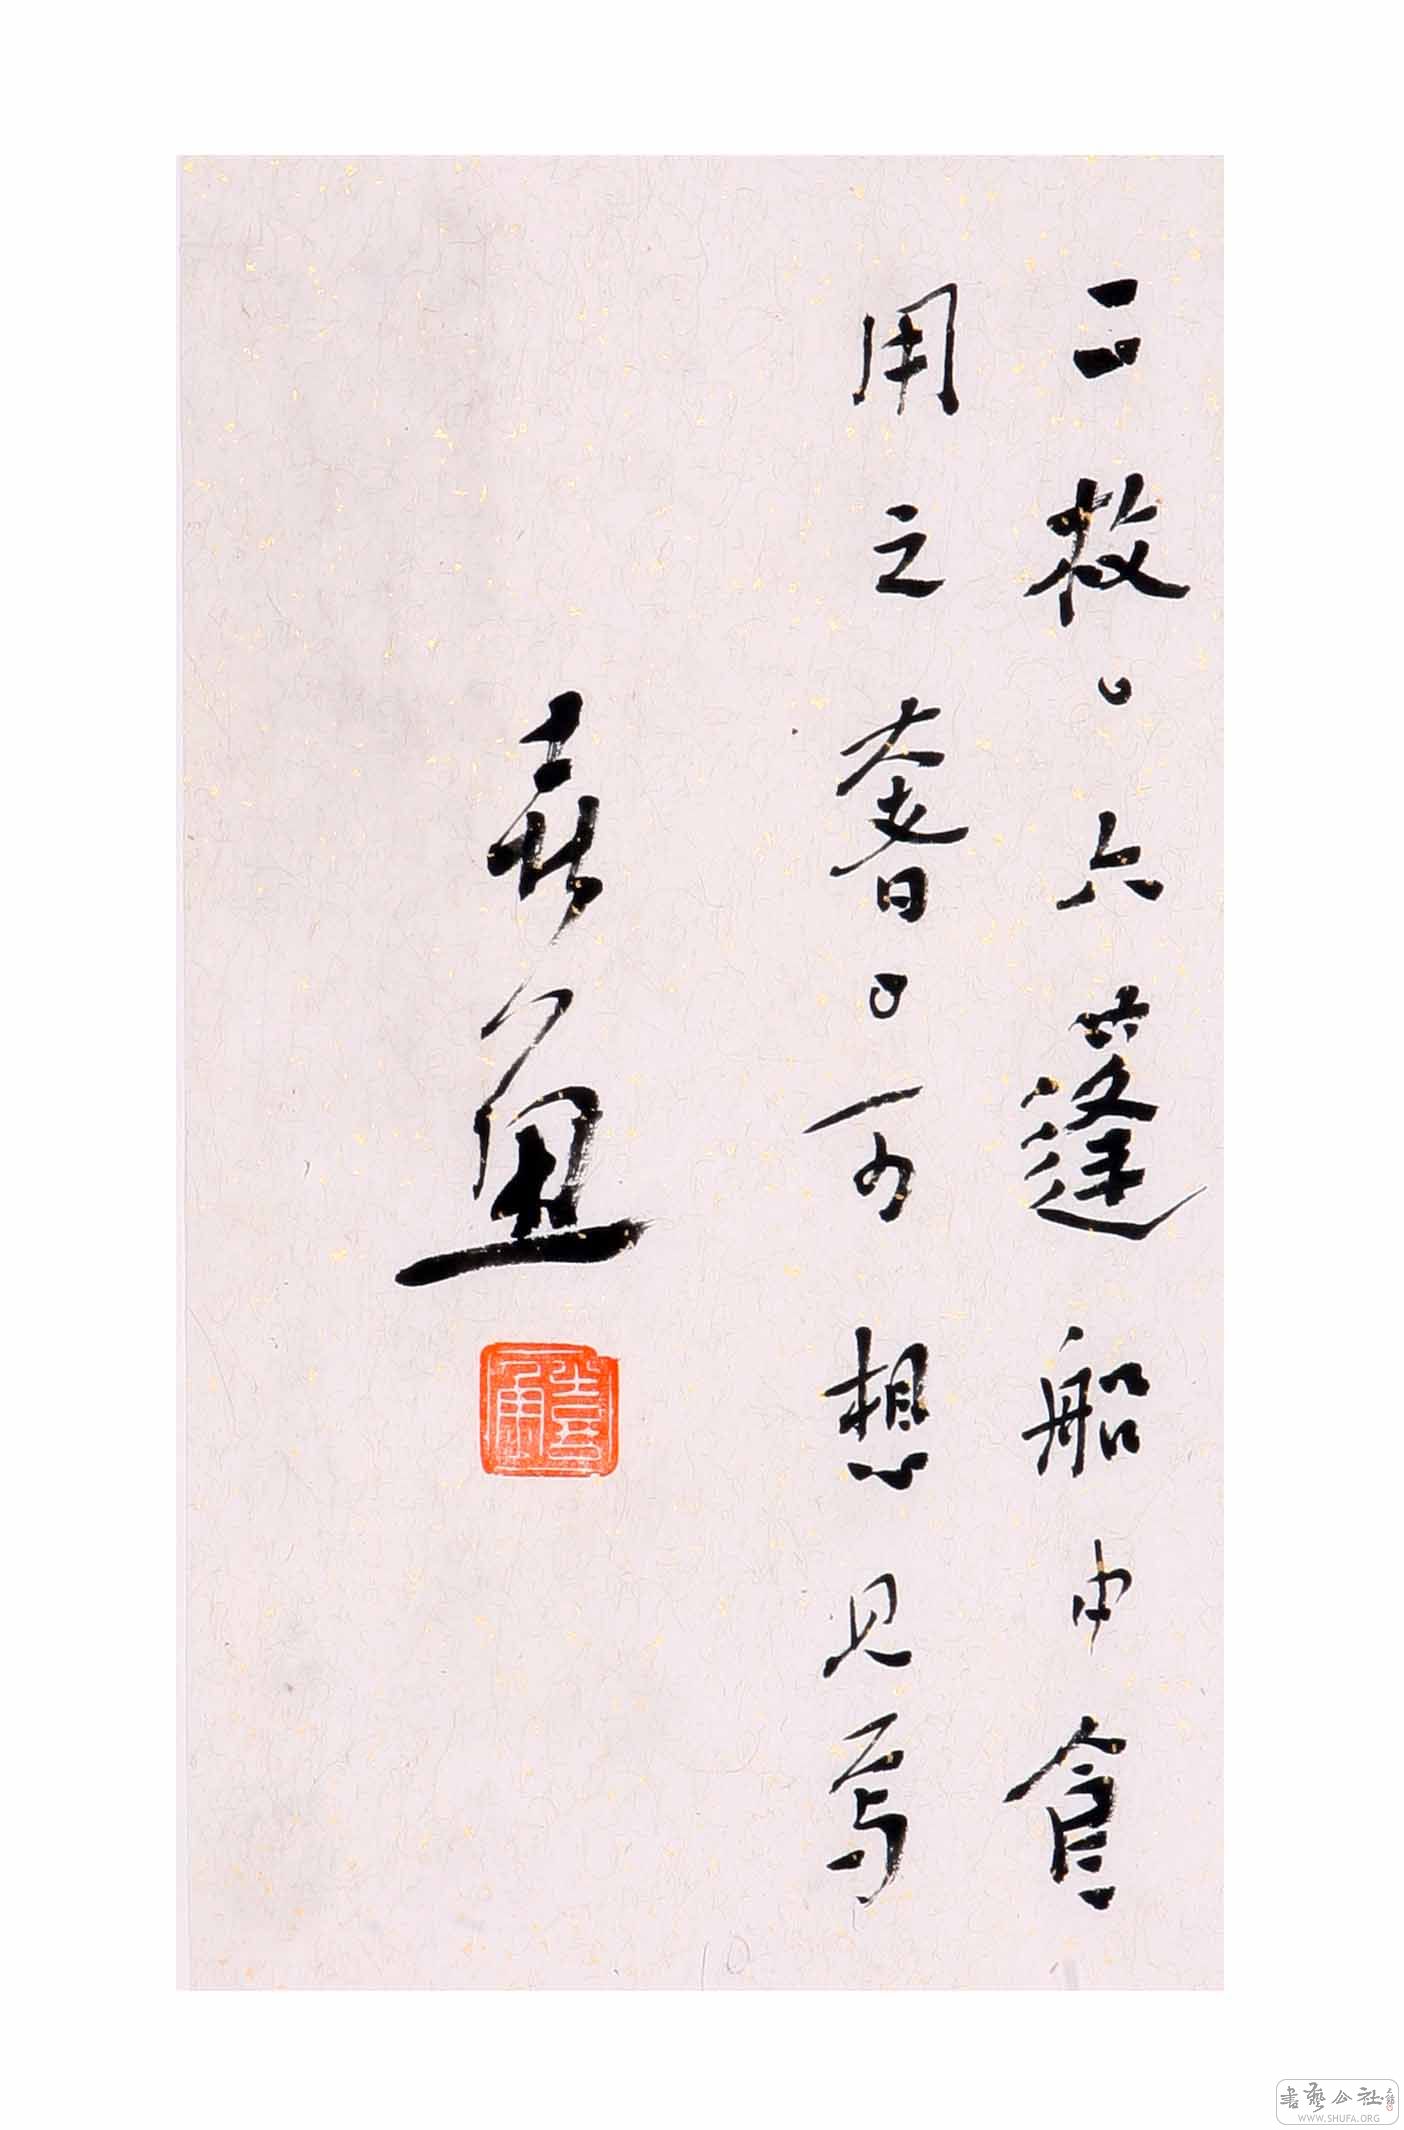 二枚。六蓬船中食
用之奢。可想見焉
10
書藝公社
WWW.SHUFA.ORG